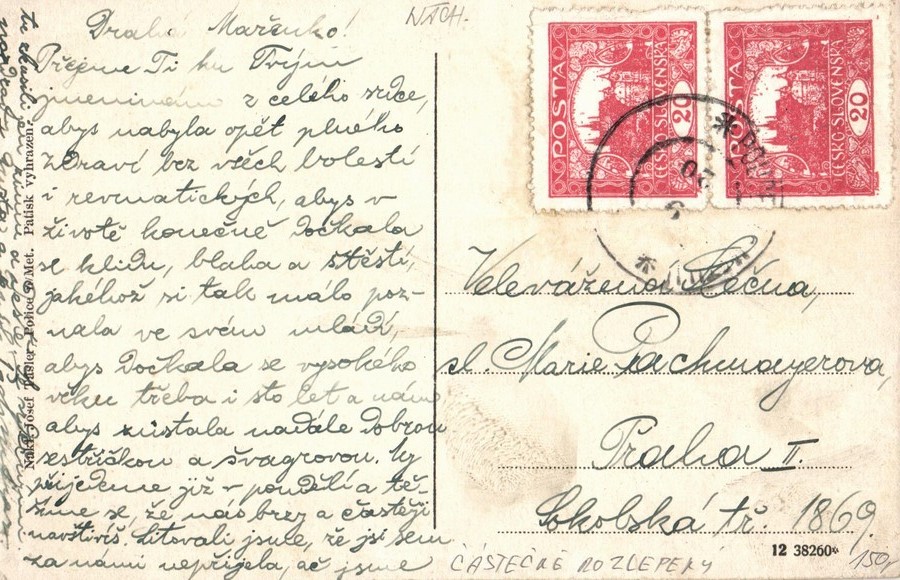 NÁCH.
Drahá Mařenko!
Přejeme Ti ku Tvým
jmeninám z celého srdce,
abys nabyla opět plného
zdraví bez všech bolestí
i revmatických, abys v
životě konečně dočkala
se klidu, blaha a štěstí,
jakéhož si tak málo poz-
nala ve svém mládí,
abys dočkala se vysokého
věku třeba i sto let a nám
abys zůstala nadále dobrou
sestřičkou a švagrovou. My
přijedeme již v pondělí a tě-
šíme se, že nás brzy a častěji
navštívíš. Litovali jsme, že jsi sem
za námi nepřijela, ač jsme
Nákl. Josef Pasler, Police n/Met. Patisk vyhrazen.
POSTA
ČESKO-SLOVENSKÁ
20
POSTA
ČESKO-SLOVENSKÁ
20
Velevážená slečna,
sl. Marie Pachmayerova,
Praha II.
Sokolská tř. 1869.
12 38260*
ČÁSTEČNĚ ROZLEPENÝ
150,-